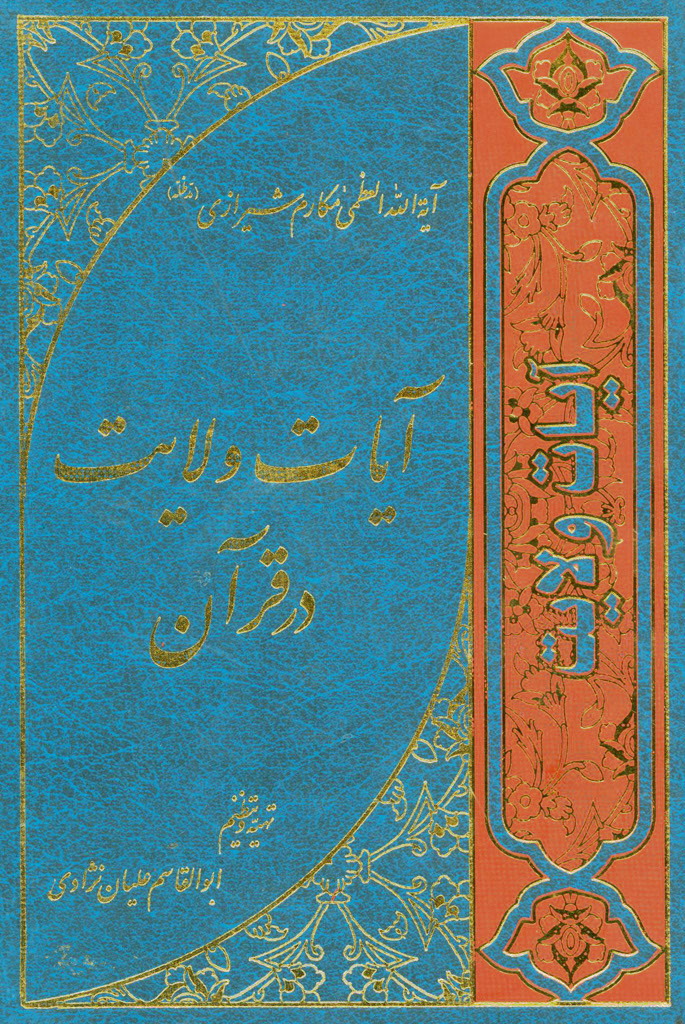 آیة الله العظمی مکارم شیرازی (مدظله)
آیات ولایت
در قرآن
تهیه و تنظیم
ابوالقاسم علیان نژادی
آیات ولایت